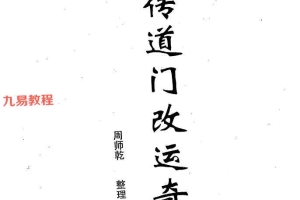 传道门改运奇
周师乾 整理
九易教程